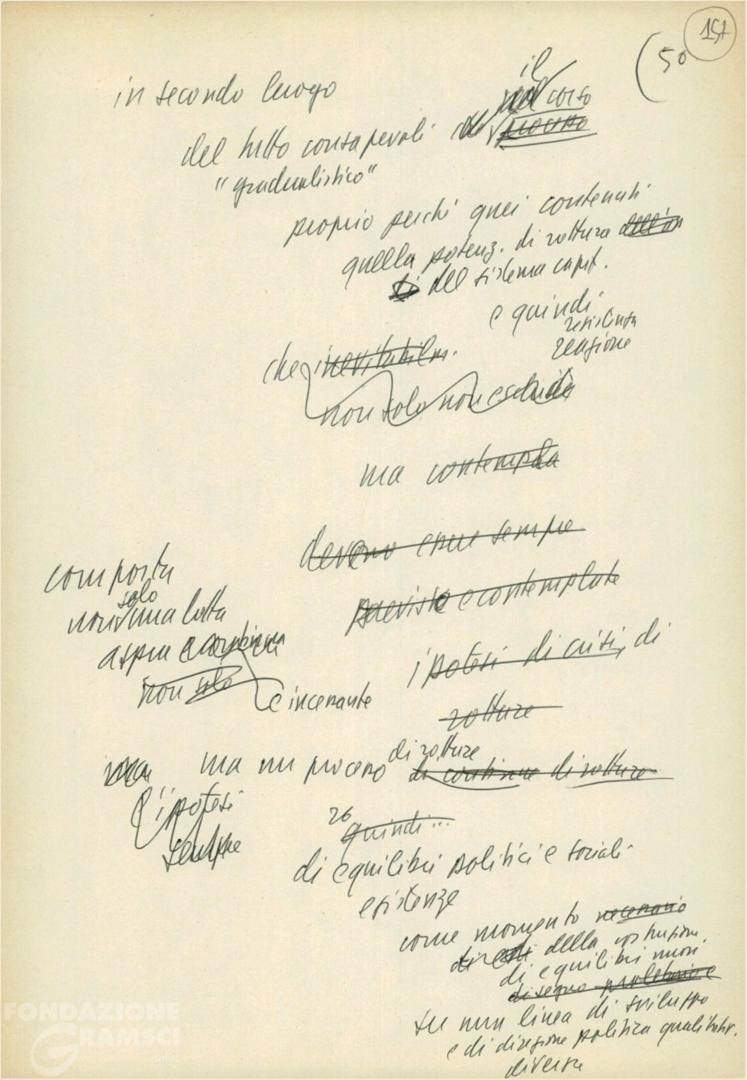 157
(50
in secondo luogo
il
corso
del tutto consapevoli del processo
"gradualistico"
proprio perché quei contenuti
quella potenz. di rottura dell'
del sistema capit.
e quindi
resistenza
reazione
che inevitabilm.
non solo non esclude
ma contempla
devono sempre
previste e contemplate
ipotesi di crisi, di
rotture
comporta
solo
non una lotta
aspra e
non solo
e incessante
ma un processo di rotture
di continue di rotture
l'ipotesi
sempre
26
quindi...
di equilibri politici e sociali
esistenze
come momento necessario
di della costruzione
di equilibri nuovi
di segno
su una linea di sviluppo
e di direzione politica qualitativ.
diversa
FONDAZIONE
GRAMSCI